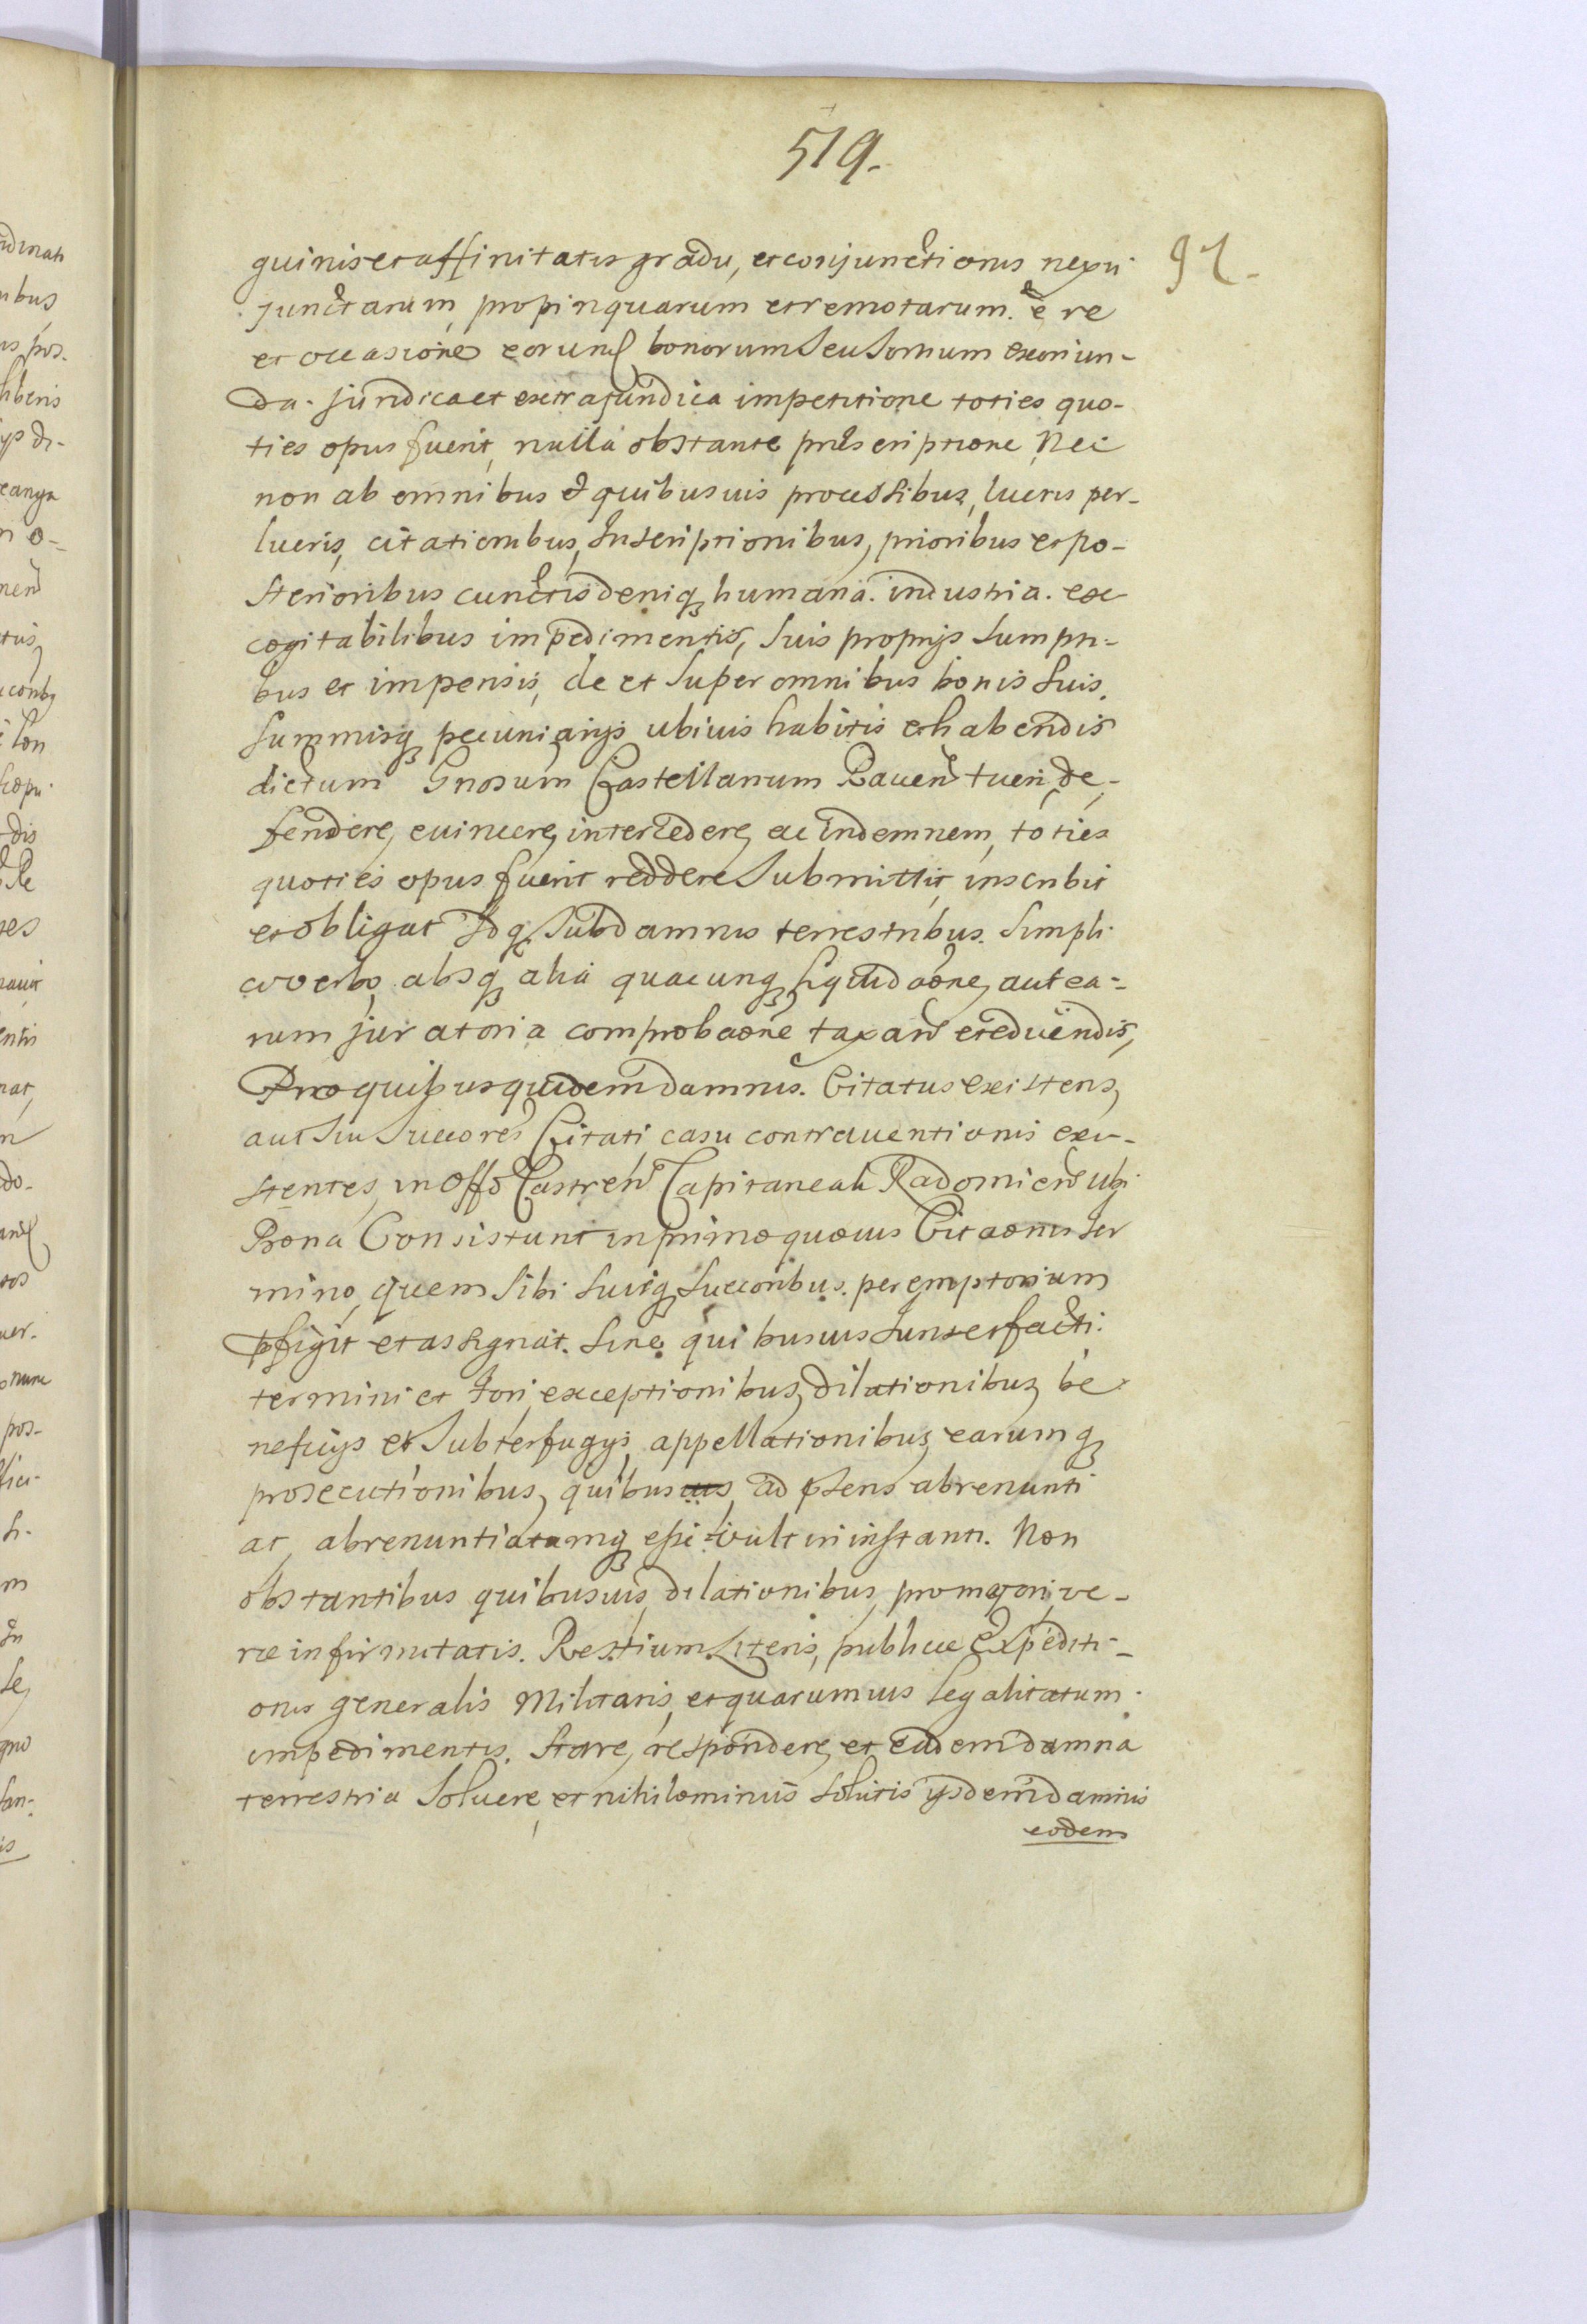 519.
91.
guinis et affinitatis gradu, et conjunctionis nexu
junctarum, propinquarum et remotarum. è re
et occasione eorund bonorum seu sortium exoriun-
da. juridica et extrajuridica impetitione toties quo-
ties opus fuerit, nullà obstante pṙscriptione, Nec
non ab omnibus & quibusuis processibus, lucris per-
lucris, citationibus, Inscriptionibus, prioribus et po-
sterioribus cunctis deniq humanà. industria. ex
cogitabilibus impedimentis, suis proprijs sumpti-
bus et impensis, de et super omnibus bonis suis,
summisq pecuniarijs ubiuis habitis et habendis
dictum Gnosum Castellanum Rauen tueri, de-
fendere, euincere, intercedere, ac indemnem, toties
quoties opus fuerit reddere submittit, inscribit
et obligat Idq sub damnis terrestribus. simpli
ci verbo, absq alià quacunq liquidaōne, aut ea-
rum juratoria comprobaōne taxand et educendis,
Pro quibus quidem damnis. Citatus existens,
aut sui succores Citati casu contrauentionis exi-
stentes, in Offō Castren Capitaneali Radomien ubi
Bona Consistunt in primo quouis Citaōnis ter
mino, quem sibi suisq succoribus. peremptorium
pfigit et assignat. sine. quibusuis Iuris et facti.
termini et fori, exceptionibus, dilationibus, be
neficijs et subterfugijs, appellationibus, earumq
prosecutionibus, quibus uis, ad pṡens abrenunti
at, abrenuntiatumq esse vult in instanti. Non
obstantibus quibusuis, dilationibus, pro majori, ve-
ræ infirmitatis. Restium Literis, publicæ Expediti-
onis generalis Militaris, et quarumuis legalitatum.
impedimentis. stare, respondere, et eadem damna
terrestria soluere, et nihilominus solutis ijsdem damnis
eodem